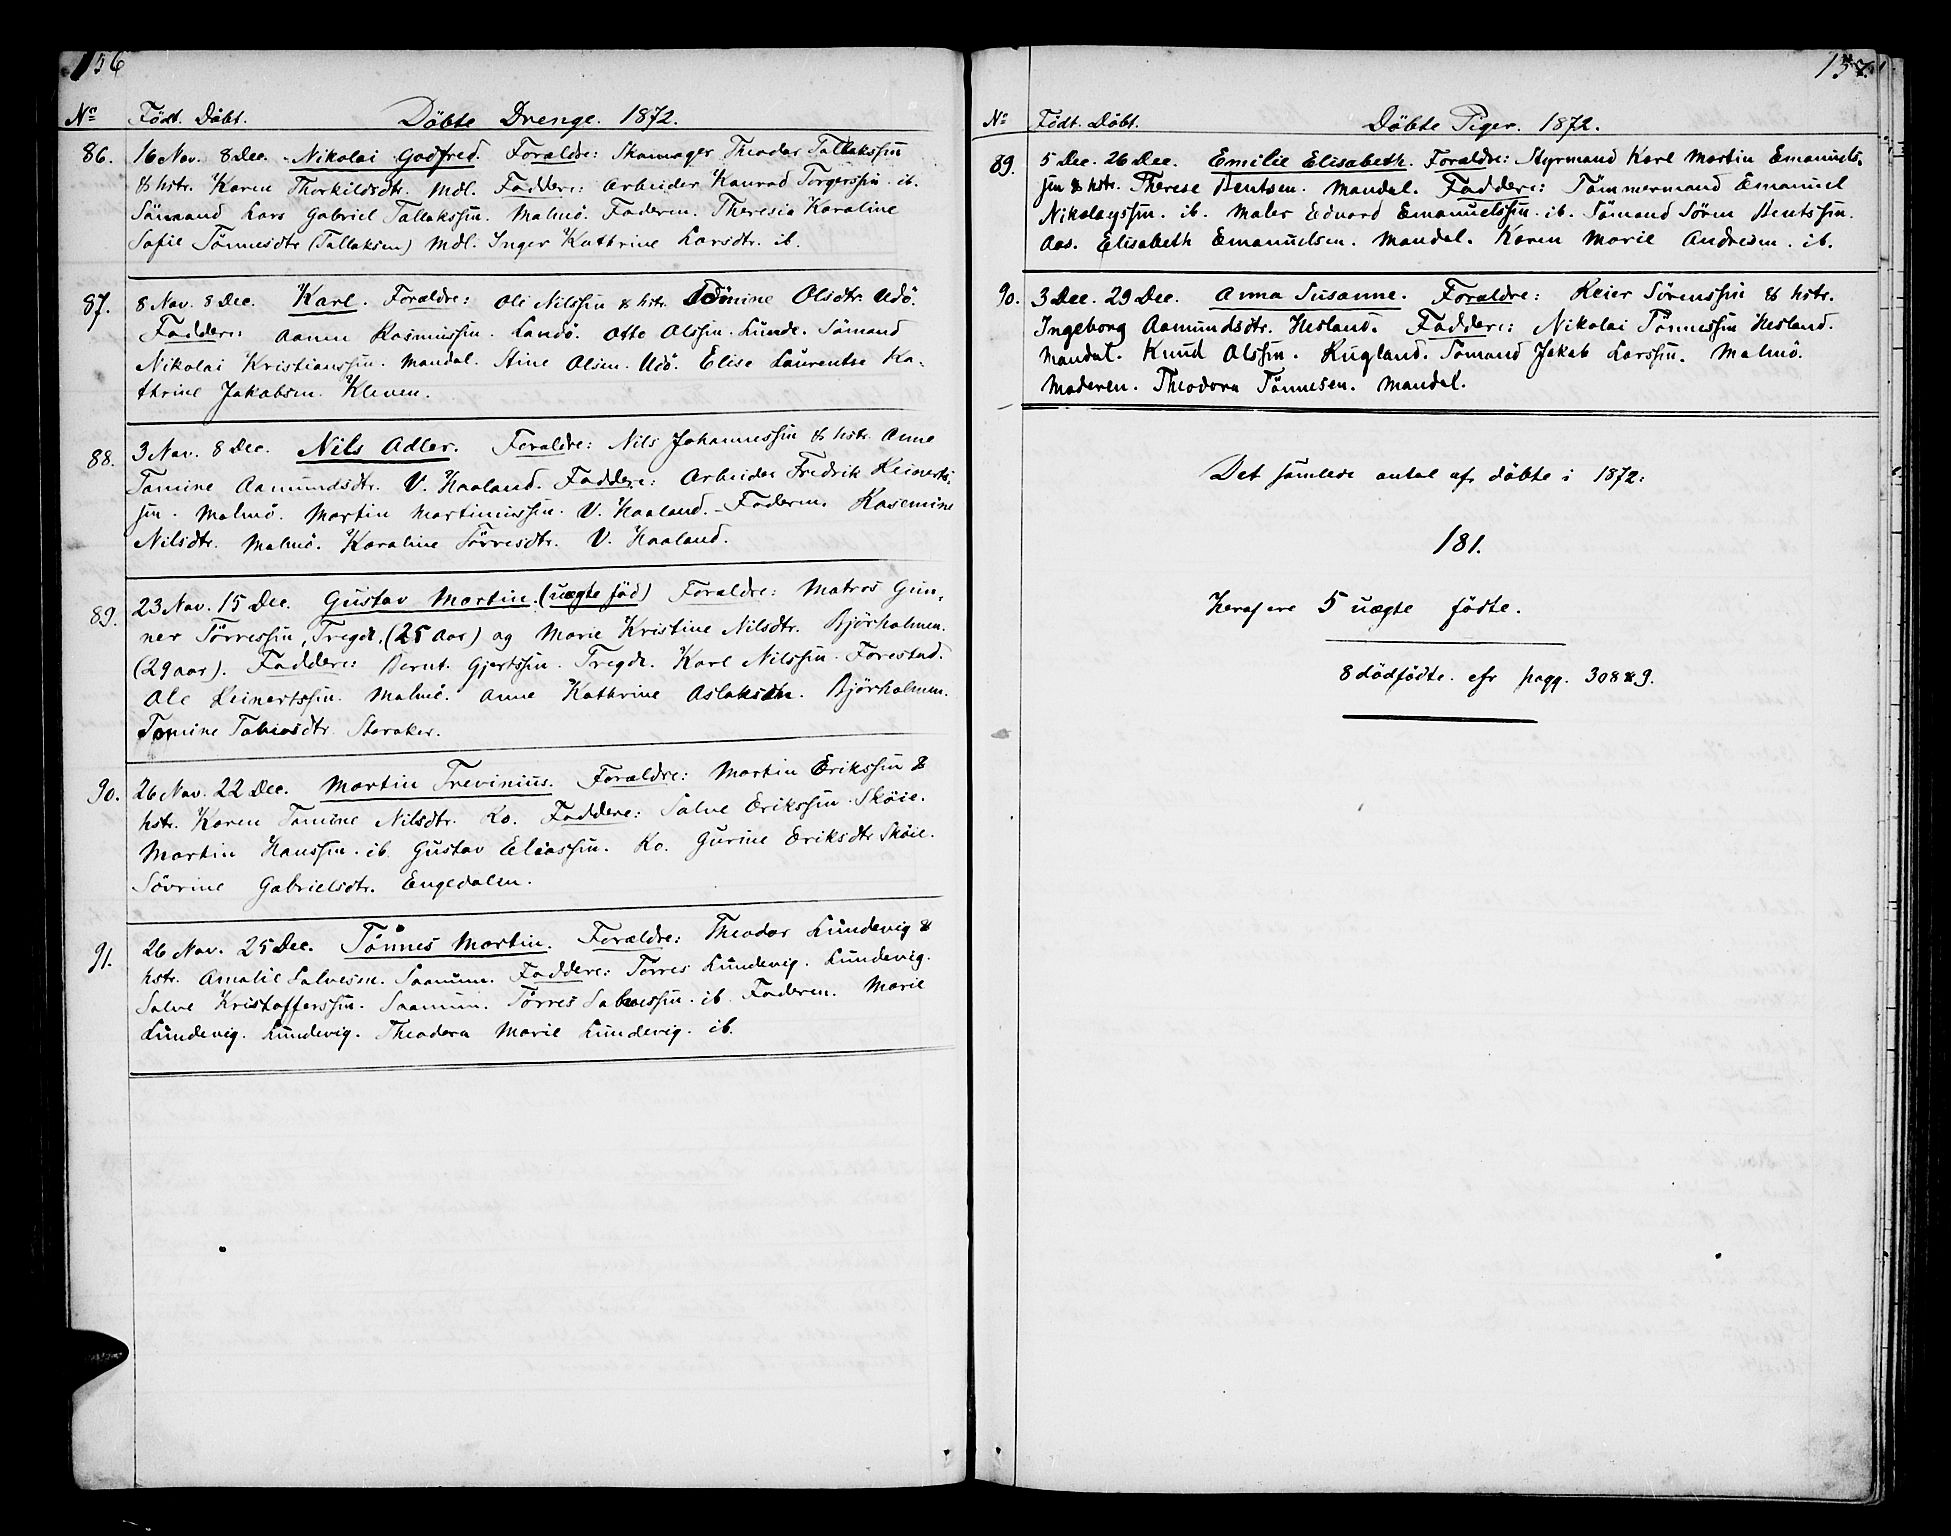 156
No Födt. Döbt. Döbte Drenge. 1872.
86. 16 Nov. 8 Dec. Nikolai Godfred. Forældre: Skomager Theodor Tallakssøn
& hstr. Karen Thorkildsdtr. Mdl. Faddere: Arbeider Konrad Torgerssøn. ib.
Sömand Lars Gabriel Tallakssøn. Malmö. Faderen. Theresia Karoline
Sofie Tönnesdtr (Tallaksen) Mdl. Inger Kathrine Larsdtr. ib.
87. 8 Nov. 8 Dec. Karl. Forældre: Ole Nilssøn & hstr. Tomine Olsdtr. Udö.
Faddere: Aanen Rasmussøn. Landö. Otto Olssøn. Lunde. Sömand
Nikolai Kristianssøn. Mandal. Stine Olsen. Udö. Elise Laurentse Ka-
thrine Jakobsen. Kleven.
88. 3 Nov. 8 Dec. Nils Adler. Forældre: Nils Johannessøn & hstr. Anne
Tomine Aamundsdtr. V. Haaland. Faddere: Arbeider Fredrik Reinerts-
søn. Malmö. Martin Martiniussøn. V. Haaland. Faderen. Rasemine
Nilsdtr. Malmö. Karoline Törresdtr. V. Haaland.
89. 23 Nov. 15 Dec. Gustav Martin. (uægte föd) Forældre: Matros Gun-
ner Törressøn, Tregde, (25 Aar) og Marie Kristine Nilsdtr. Björholmen.
(29 aar). Faddere: Bernt Gjertssøn. Tregde. Karl Nilssøn. Forestad.
Ole Reinertssøn. Malmö. Anne Kathrine Aslaksdtr. Björholmen.
Tomine Tobiasdtr. Storaker.
90. 26 Nov. 22 Dec. Martin Trevinius. Forældre: Martin Erikssøn &
hstr. Karen Tomine Nilsdtr. Ko. Faddere: Salve Erikssøn. Sköie.
Martin Hanssøn. ib. Gustav Eliassøn. Ko. Gurine Eriksdtr. Sköie.
Sövrine Gabrielsdtr. Engedalen.
91. 26 Nov. 25 Dec. Tönnes Martin. Forældre: Theodor Lundevig &
hstr. Amalie Salvesen. Saanum. Faddere: Törres Lundevig. Lundevig.
Salve Kristofferssøn. Saanum. Törres Salvessøn. ib. Faderen. Marie
Lundevig. Lundevig. Theodora Marie Lundevig. ib.
157.
No Födt. Döbt. Döbte Piger. 1872.
89. 5 Dec. 26 Dec. Emilie Elisabeth. Forældre: Styrmand Karl Martin Emanuels-
søn & hstr. Therese Bentsen. Mandal. Faddere: Tömmermand Emanuel
Nikolayssøn. ib. Maler Edvard Emanuelssøn. ib. Sömand Sören Bentssøn.
Aas. Elisabeth Emanuelsen. Mandal. Karen Marie Andresen. ib.
90. 3 Dec. 29 Dec. Anna Susanne. Forældre: Reier Sörenssøn & hstr.
Ingeborg Aamundsdtr. Hesland. Faddere: Nikolai Tönnessøn Hesland.
Mandal. Knud Olssøn. Rugland. Sömand Jakob Larssøn. Malmö.
Moderen. Theodora Tönnesen. Mandal.
Det samlede antal af döbte i 1872:
181.
Heraf ere 5 uægte födte.
8 dödfödte. cfr pagg. 308 & 9.